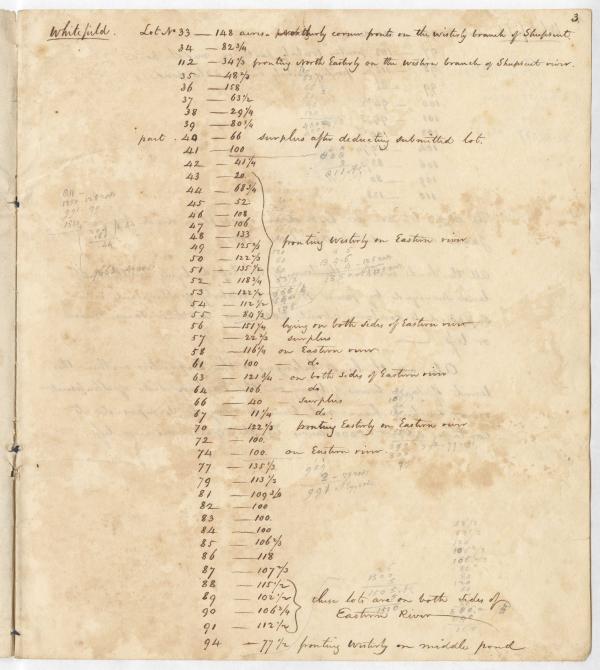 3
Whitefield. Lot No 33 — 148 acres - northerly corner fronts on the westerly branch of Shepscut
34 — 82 3/4
112 — 34 1/3 fronting North Easterly on the western branch of Shepscut river.
35 — 48 2/3
36 — 158
37 — 63 1/2
38 — 29 1/4
39 — 80 3/4
part . 40 — 66 surplus after deducting submitted lot.
41 — 100
42 — 41 1/4
43 — 20
44 — 68 3/4
45 — 52
46 — 108
47 — 106
48 — 133
49 — 125 2/3
fronting Westerly on Eastern river
50 — 122 2/3
51 — 135 1/2
52 — 118 3/4
53 — 122 1/2
54 — 112 1/2
55 — 84 1/2
56 — 151 1/4 lying on both sides of Eastern river
57 — 22 2/3 surplus
58 — 116 1/4 on Eastern river
61 — 100 — do
63 — 121 3/4 — on both sides of Eastern river
64 — 106 — do
66 — 40 — surplus
67 — 11 1/4 — do
70 — 122 2/3 fronting Easterly on Eastern river
72 — 100.
74 — 100. on Eastern river.
77 — 135 1/2
79 — 113 1/3
81 — 109 3/4
82 — 100
83 — 100.
84 — 100
85 — 106 2/3
86 — 118
87 — 107 2/3
88 — 115 1/2
89 — 102 1/2 these lots are on both sides of
90 — 106 3/4 Eastern River
91 — 112 1/2
94 — 77 1/2 fronting Westerly on middle pond